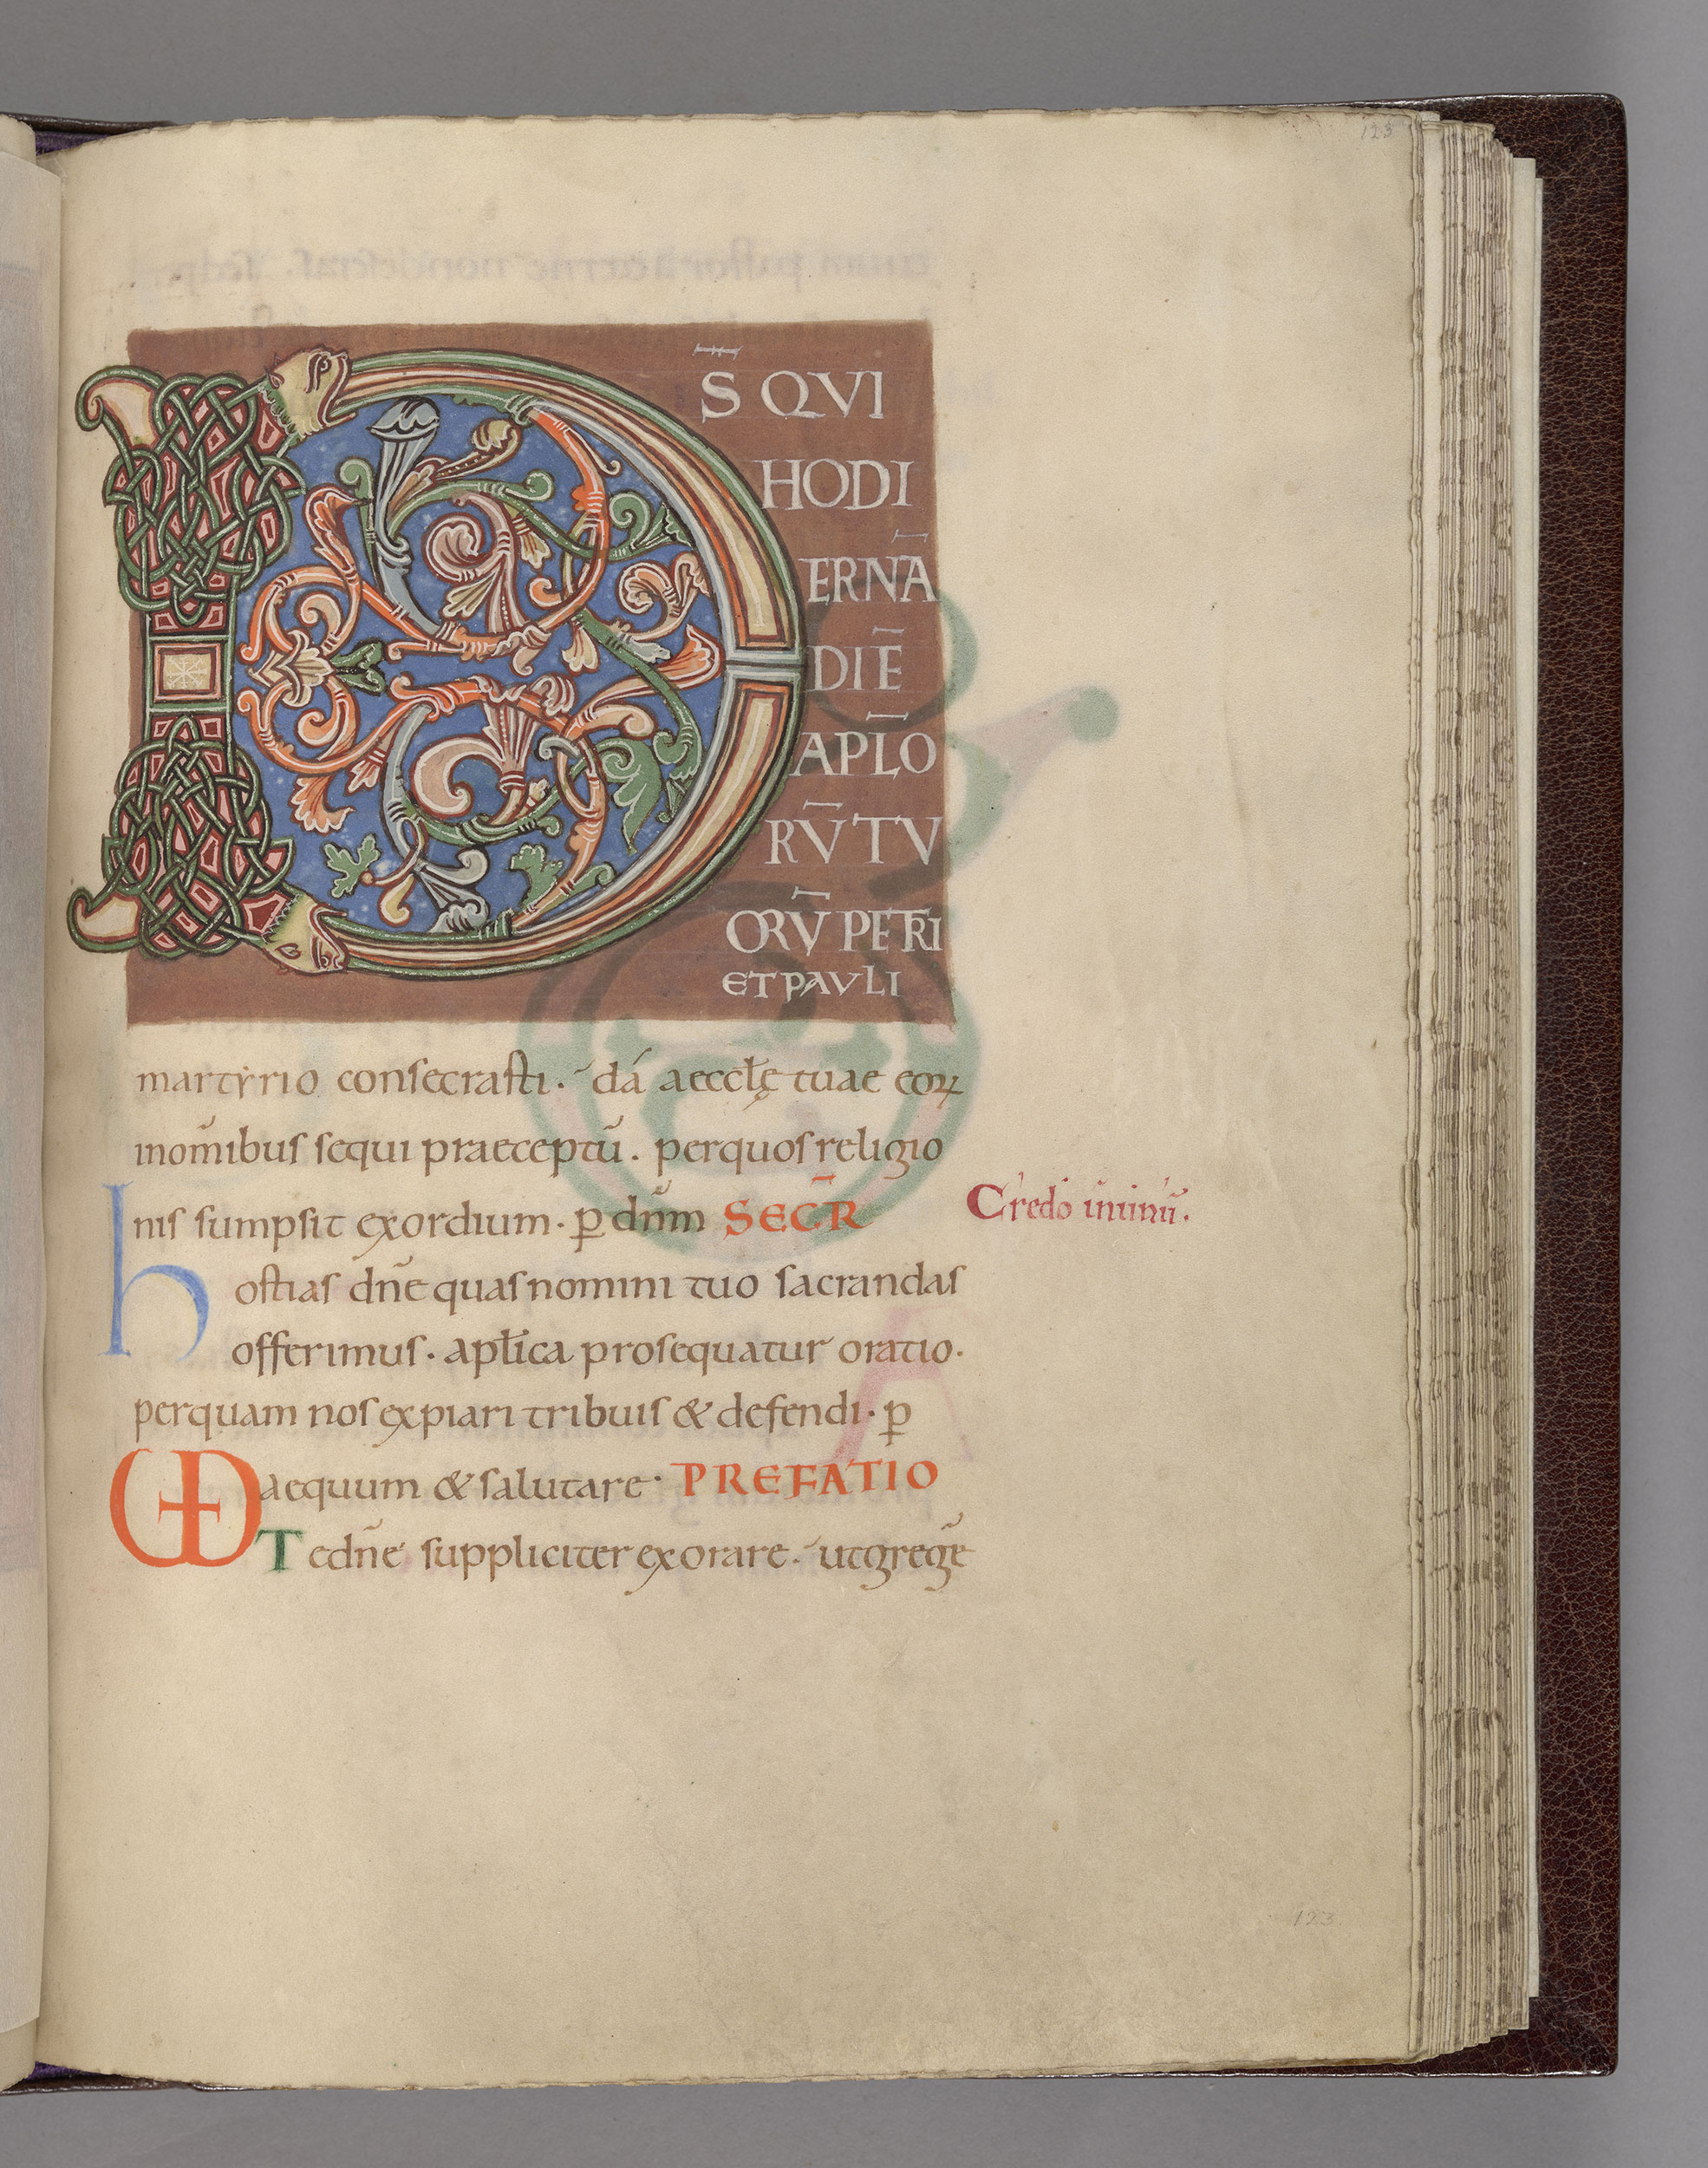 123
D S̄ QVI
HODI
ERNĀ
DIĒ
APL̄O
RV̄ TV
ORV̄ PETRI
ET PAVLI
martyrio consecrasti · dá aeccl̄ę tuae eoꝝ
inom̄ibus sequi praeceptū . perquos religio
nis sumpsit exordium · ꝑ dn̄m SECR̄
hostias dn̄e quas nomini tuo sacrandas
offerimus · apl̄ica prosequatur oratio ·
perquam nos expiari tribuis & defendi · ꝑ
VD aequum & salutare · PREFATIO
Te dn̄e suppliciter exorare · ut gregē
Credo in̄ unū .
123